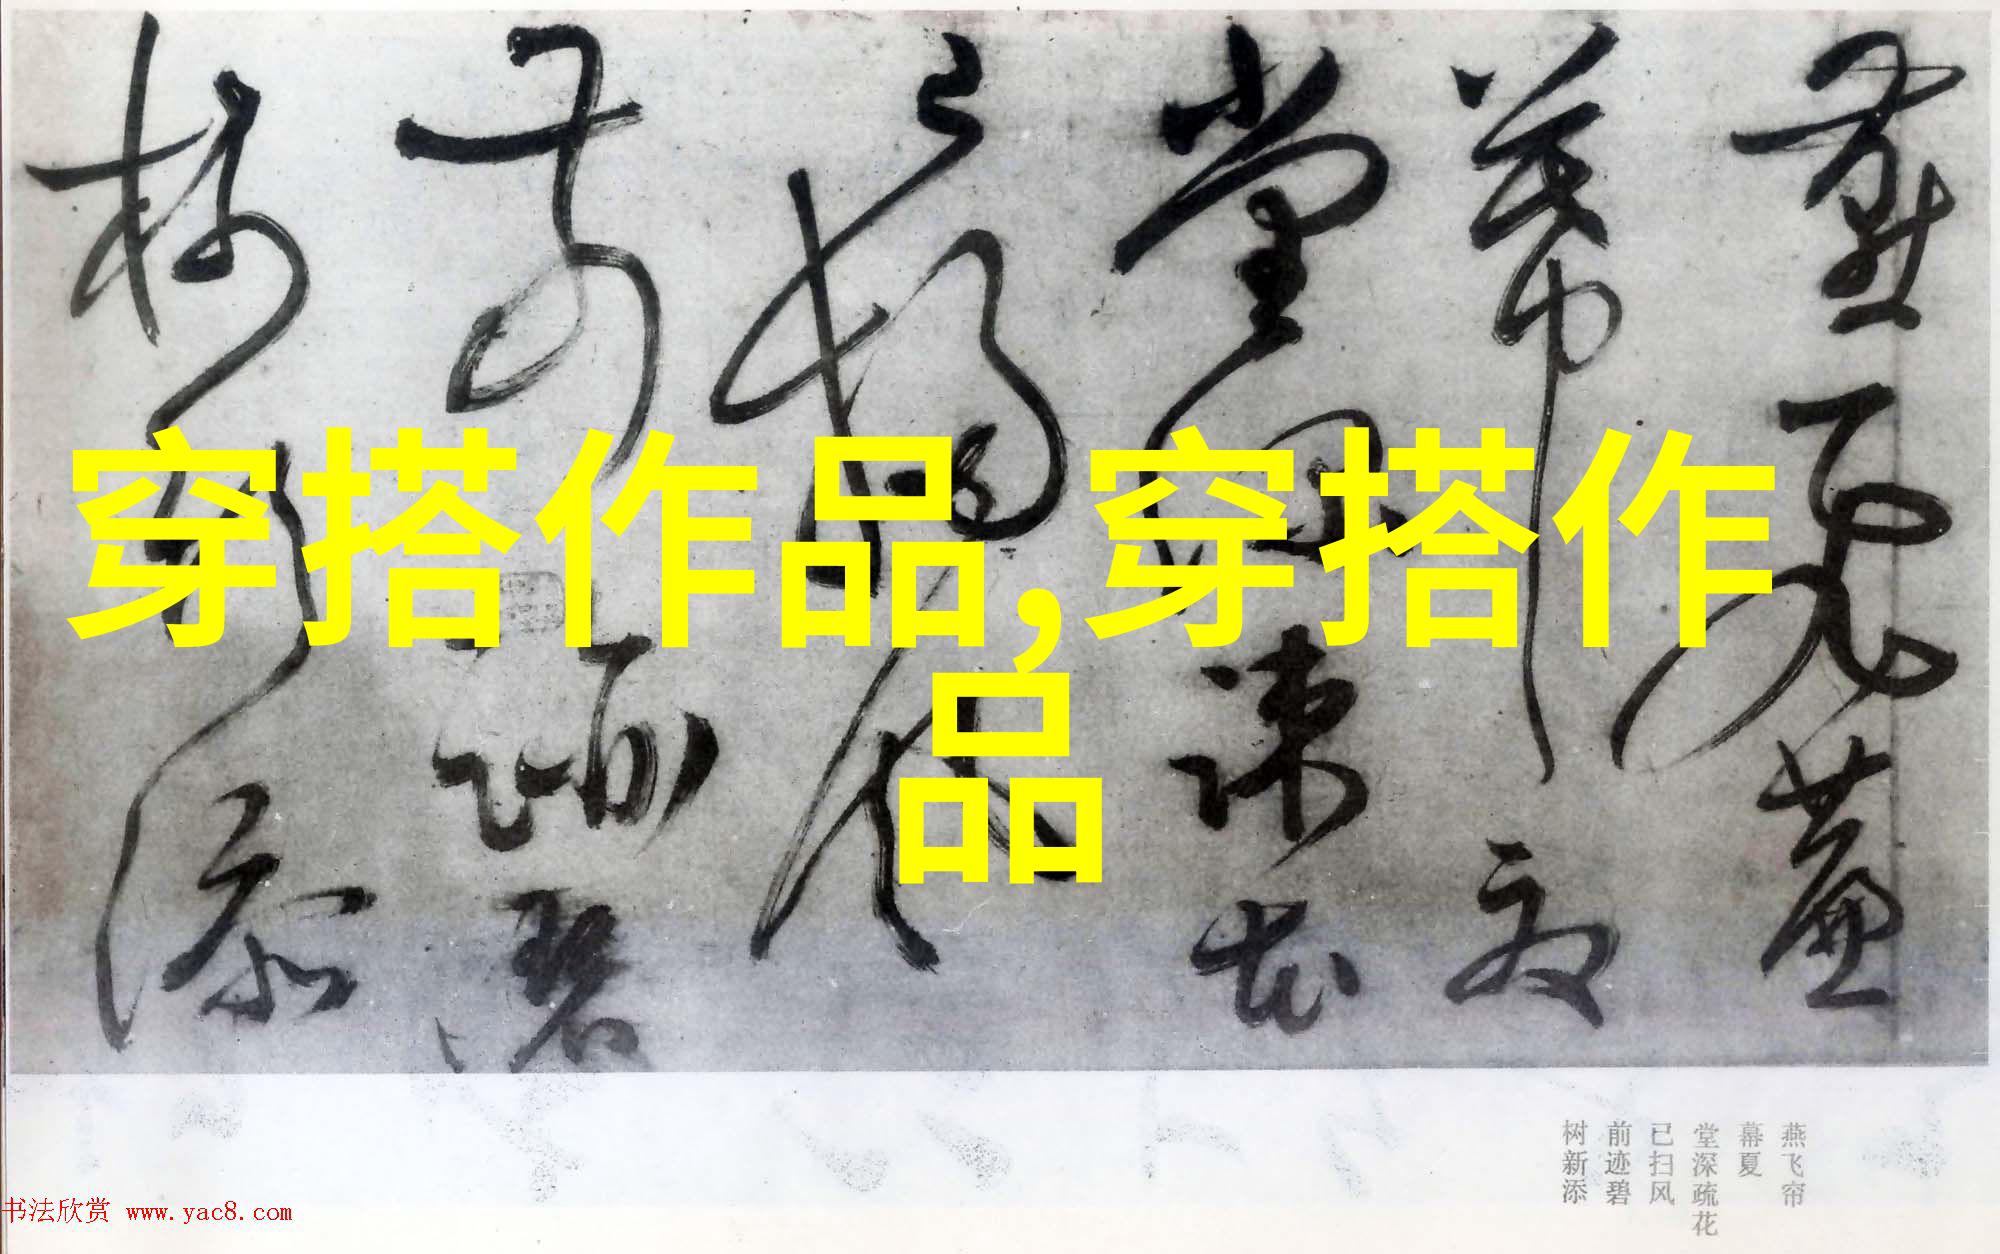 穿搭作品,穿搭作
品
燕飞帘
幕夏
堂深疏花
已扫风
前迹碧
树新添
书法欣赏 www.yac8.com